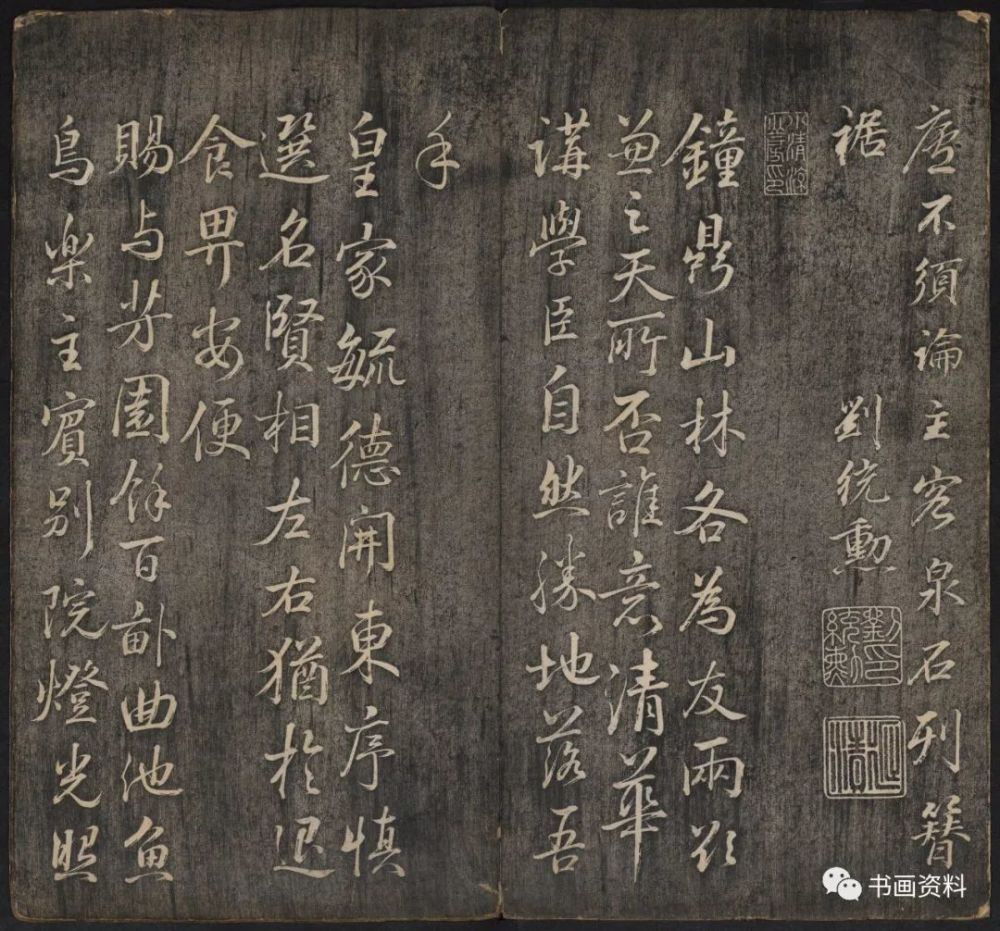 廬不須論主客泉石列簪
裾
劉統勳
劉統勳印
鐘鼎山林各為友兩欲
兼之天所否誰意清華
講學臣自然勝地落吾
手
皇家毓德開東序慎
選名賢相左右猶於退
食畀安便
賜与芳園餘百畝曲池魚
鳥楽主賓別院燈光照
书画资料